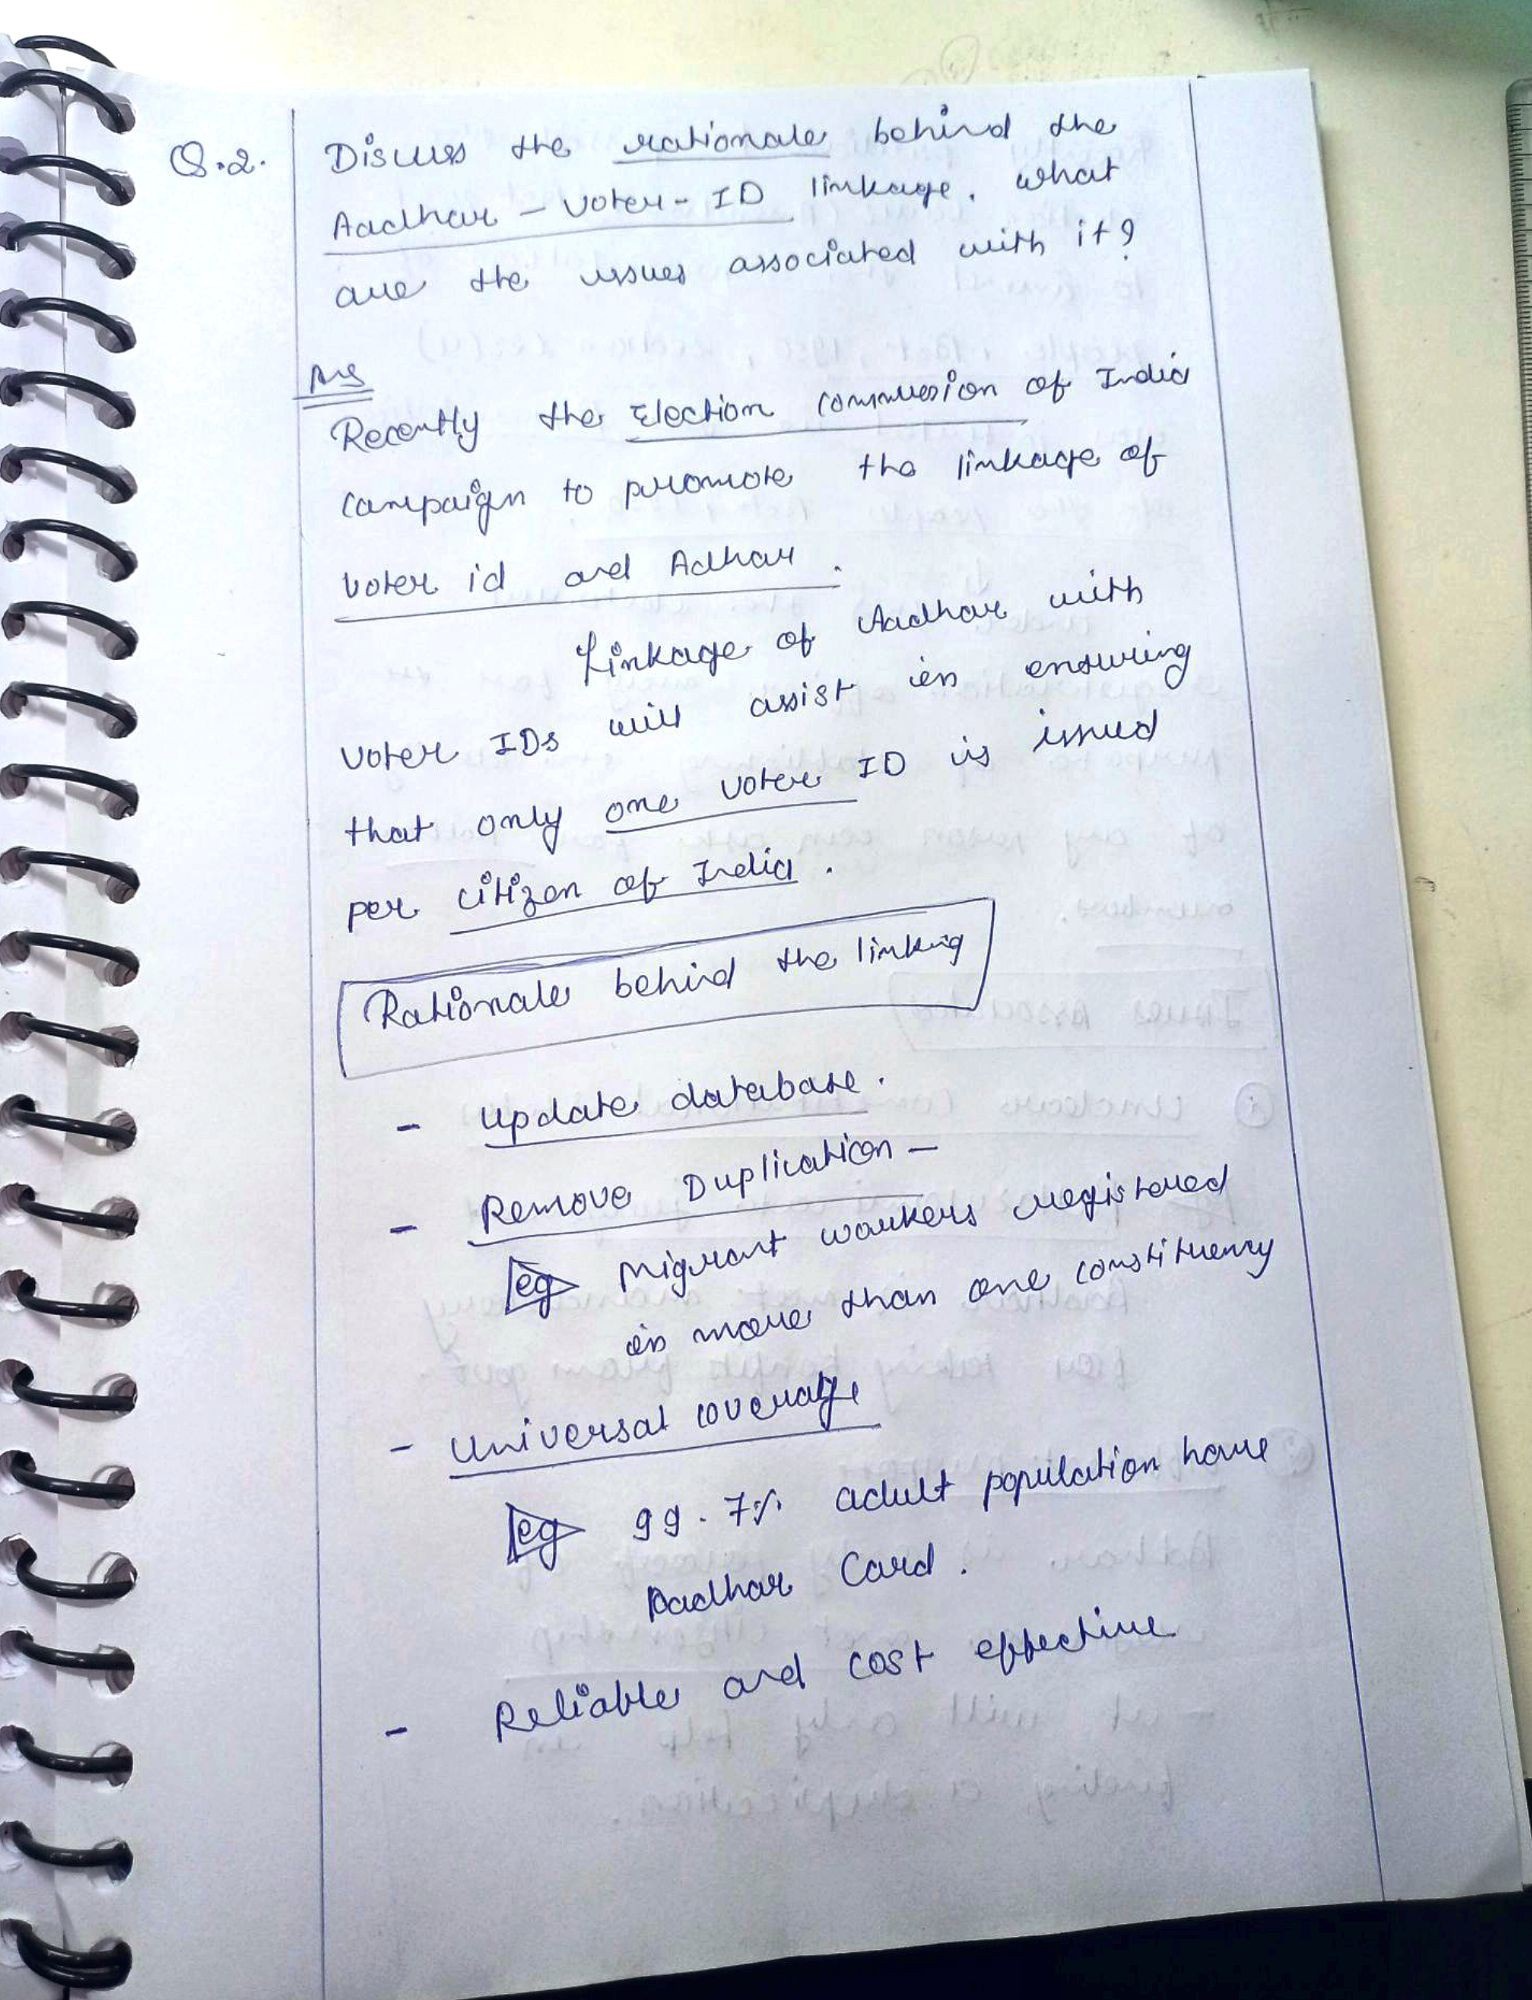 Q.2. Discuss the rationale behind the
Aadhar - Voter - ID linkage. What
are the issues associated with it?
Ans
Recently the Election commission of India
campaign to promote the linkage of
voter id and Adhar.
Linkage of Aadhar with
voter IDs will assist in ensuring
that only one voter ID is issued
per citizen of India.
Rationale behind the linking
- update database.
- Remove Duplication -
eg Migrant workers registered
in more than one constituency
- universal coverage
eg 99.7% adult population have
Aadhar Card.
- Reliable and cost effective